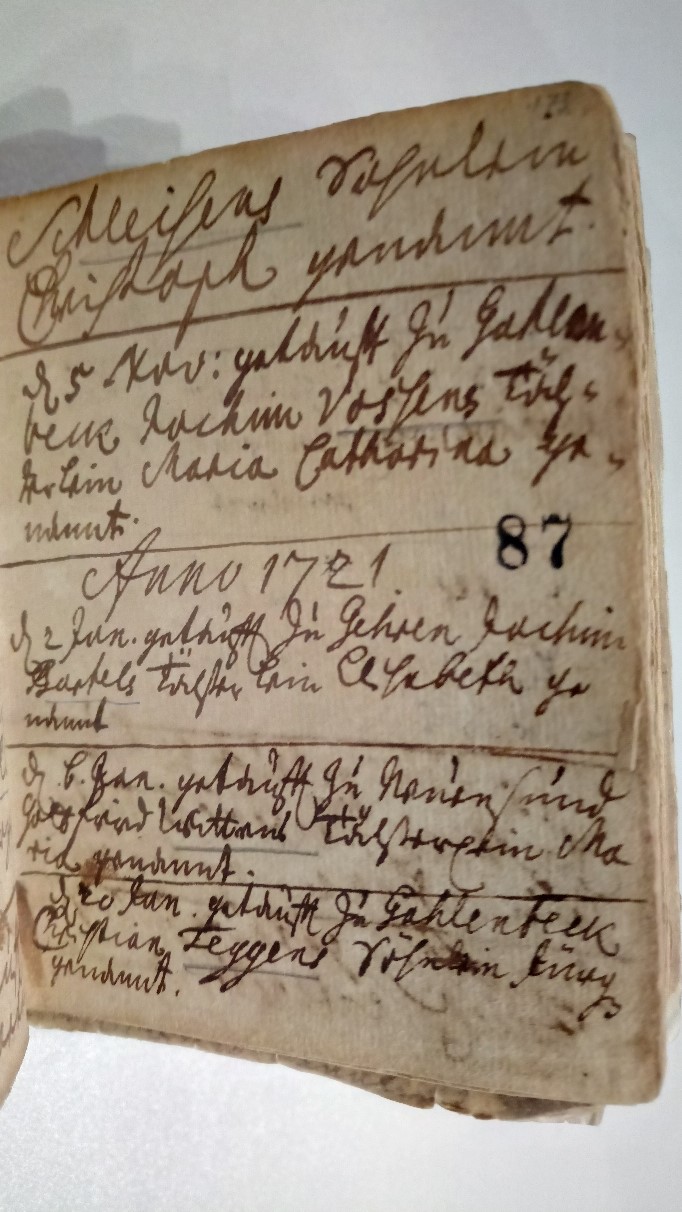 Schleißens Söhnlein
Christoph genannt.
d 5 Nov: getaufft zu Gahlen-
beck Jochim Vossens Töch-
terlein Maria Catharina ge-
nannt.
87
Anno 1721
d 2 Jan. getaufft zu Gehren Jochim
Bartels Töchterlein Elisabeth ge
nannt
d 6. Jan. getaufft zu Neuensund
Gottfried Wittens Töchterlein Ma
ria genannt.
d 20 Jan. getaufft zu Gahlenbeck
Christian Teggens Söhnlein Jürg
genannt.